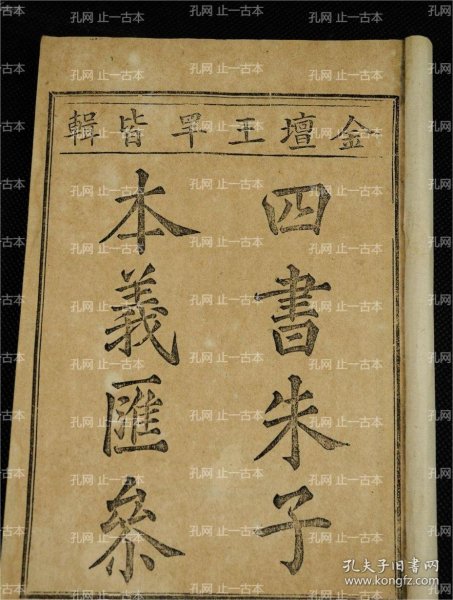 金壇王罕皆輯
四書朱子
本義匯叅
孔网 止一古本
孔夫子旧書网
www.kongfz.com